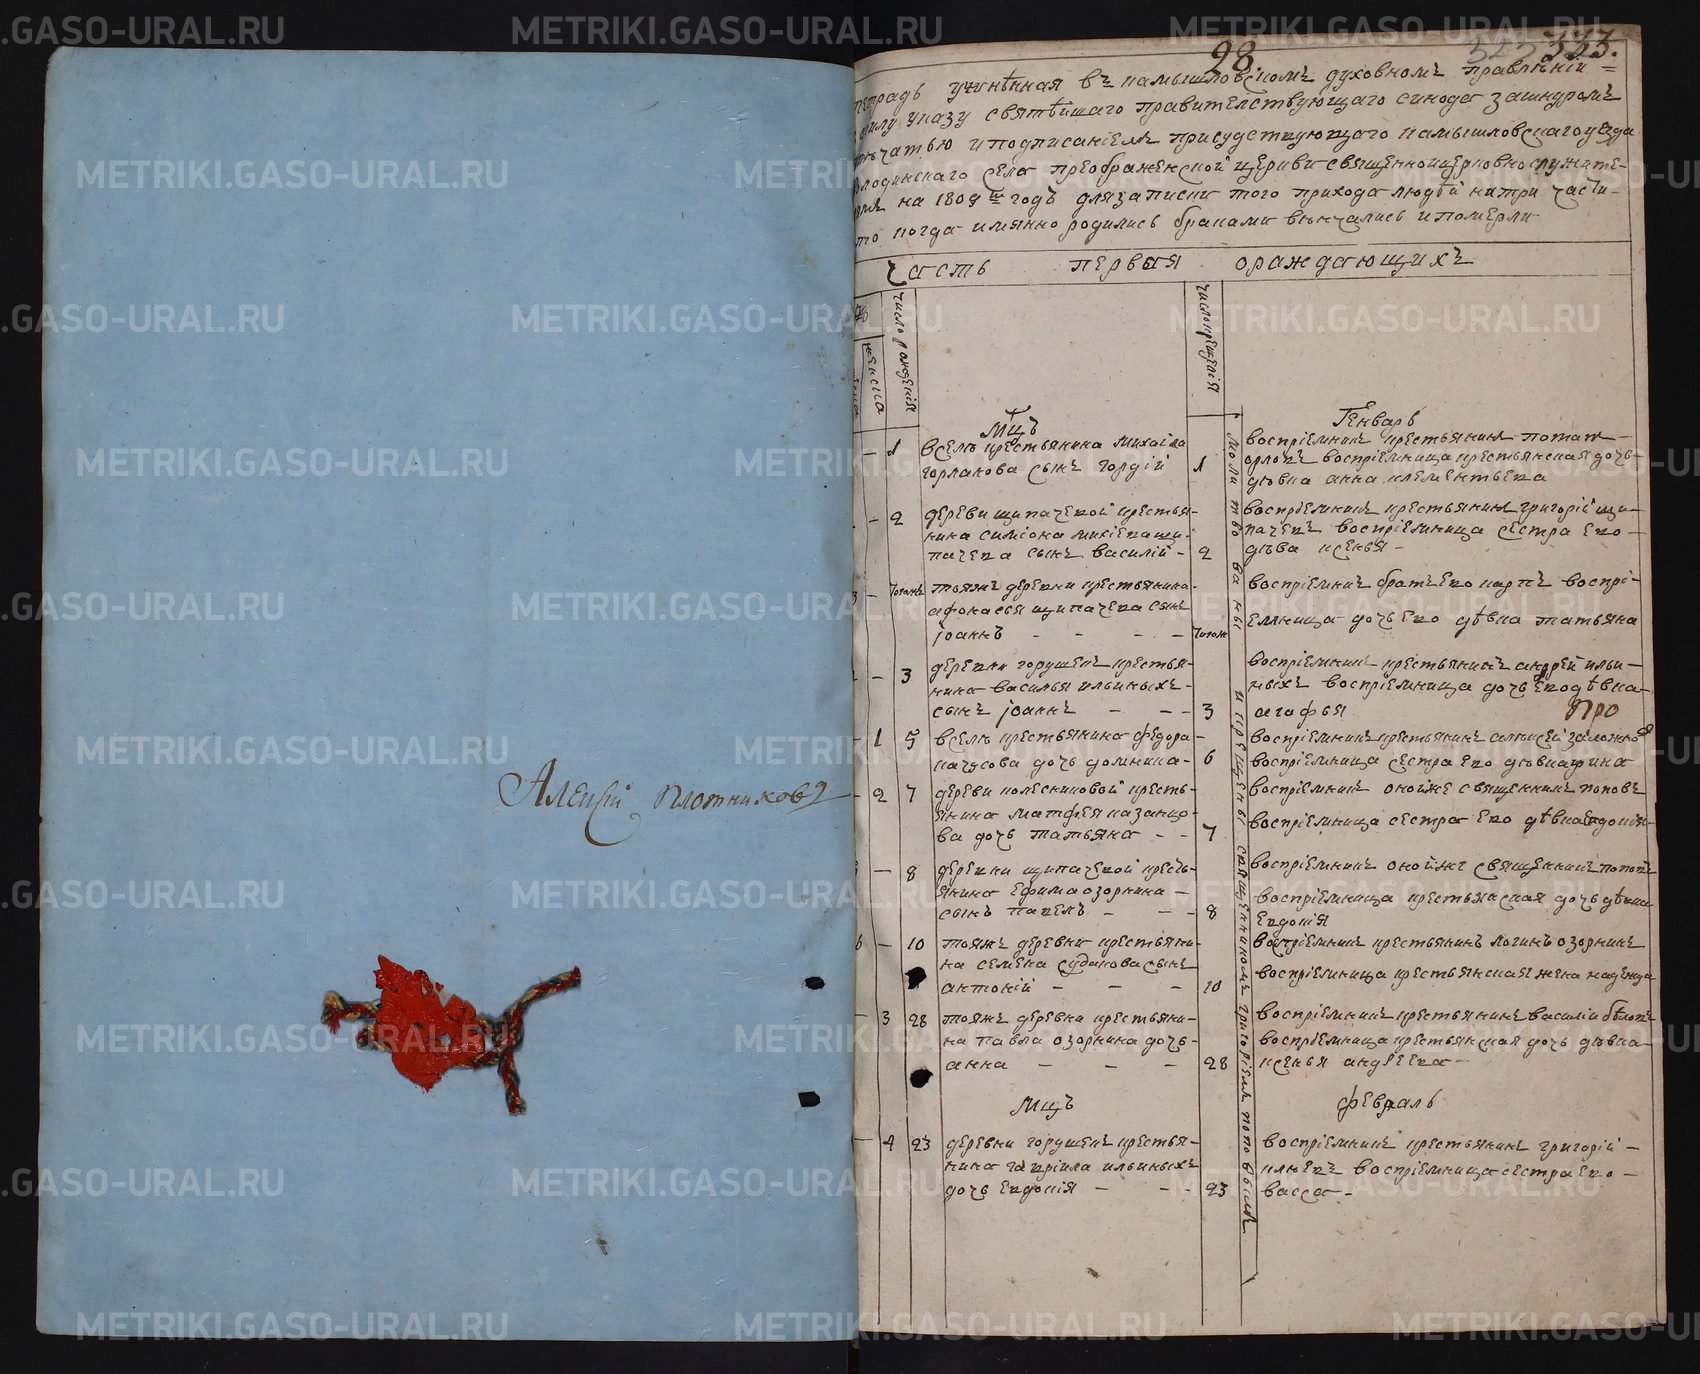 Алексѣй Плотниковъ
98.
323.
тетрадь учинѣнная въ камышловскомъ духовномъ правлѣнии
силу указу святѣйшаго правителствующаго синода зашнуромъ
печатью и подписаніемъ присудствующаго камышловскаго уезда
села преображенской церкви священноицерковнослужите-
на 1809 годъ для записки того прихода людѣй на три части
кто когда имянно родились браками венчались и померли
Часть первая ораждающихъ
женска
число рождения
число крещения
Мцъ Генварь
1 вселѣ крестьянина михаила
горлакова сынъ гордій 1
воспріемникъ крестьянинъ потап
орловъ воспріемница крестьянская дочь
девка анна клементьева
2 деревни щипачевой крестья-
нина симіона михіева щи-
пачева сынъ василій 2
воспріемникъ крестьянинъ григорій щи-
пачевъ воспріемница сестра ево
девка ксенья
тогож тояжъ деревни крестьянина
афонасья щипачева сынъ
іоаннъ тогож
воспріемникъ братъ ево карпъ воспрі-
емница дочь ево дѣвка татьяна
3 деревни горушекъ крестья-
нина василья ильиныхъ
сынъ іоаннъ 3
воспріемникъ крестьянинъ андрей ильи-
ныхъ воспріемница дочь ево дѣвка
агафья
Про
1 5 вселѣ крестьянина федора
дочь домника 6
воспріемникъ крестьянинъ алексей
воспріемница сестра ево девка
2 7 деревни колесниковой кресть-
янина матфея казанцо-
ва дочь татьяна 7
воспріемникъ онойже священникъ поповъ
воспріемница сестра ево дѣвка евдокія
8 деревни щипачевой кресть-
янина ефима озорнина
сынъ павелъ 8
воспріемникъ онойже священникъ поповъ
воспріемница крестьянская дочь дѣвка
евдокія
6 10 тояжъ деревни крестьяни-
на семена судакова сынъ
антоній 10
воспріемникъ крестьянинъ логинъ озорнинъ
воспріемница крестьянская жена надежда
3 28 тояжъ деревни крестьяни-
на павла озорнина дочь
анна 28
воспріемникъ крестьянинъ василіи бѣловъ
воспріемница крестьянская дочь девка
ксенья андреева
Мцъ февраль
4 23 деревни горушекъ крестья-
нина гавріила ильиныхъ
дочь евдокія 23
воспріемникъ крестьянинъ григорій
клюевъ воспріемница сестра ево
васса
молитвованы и крещены священникомъ григоріемъ поповымъ
METRIKI.GASO-URAL.RU